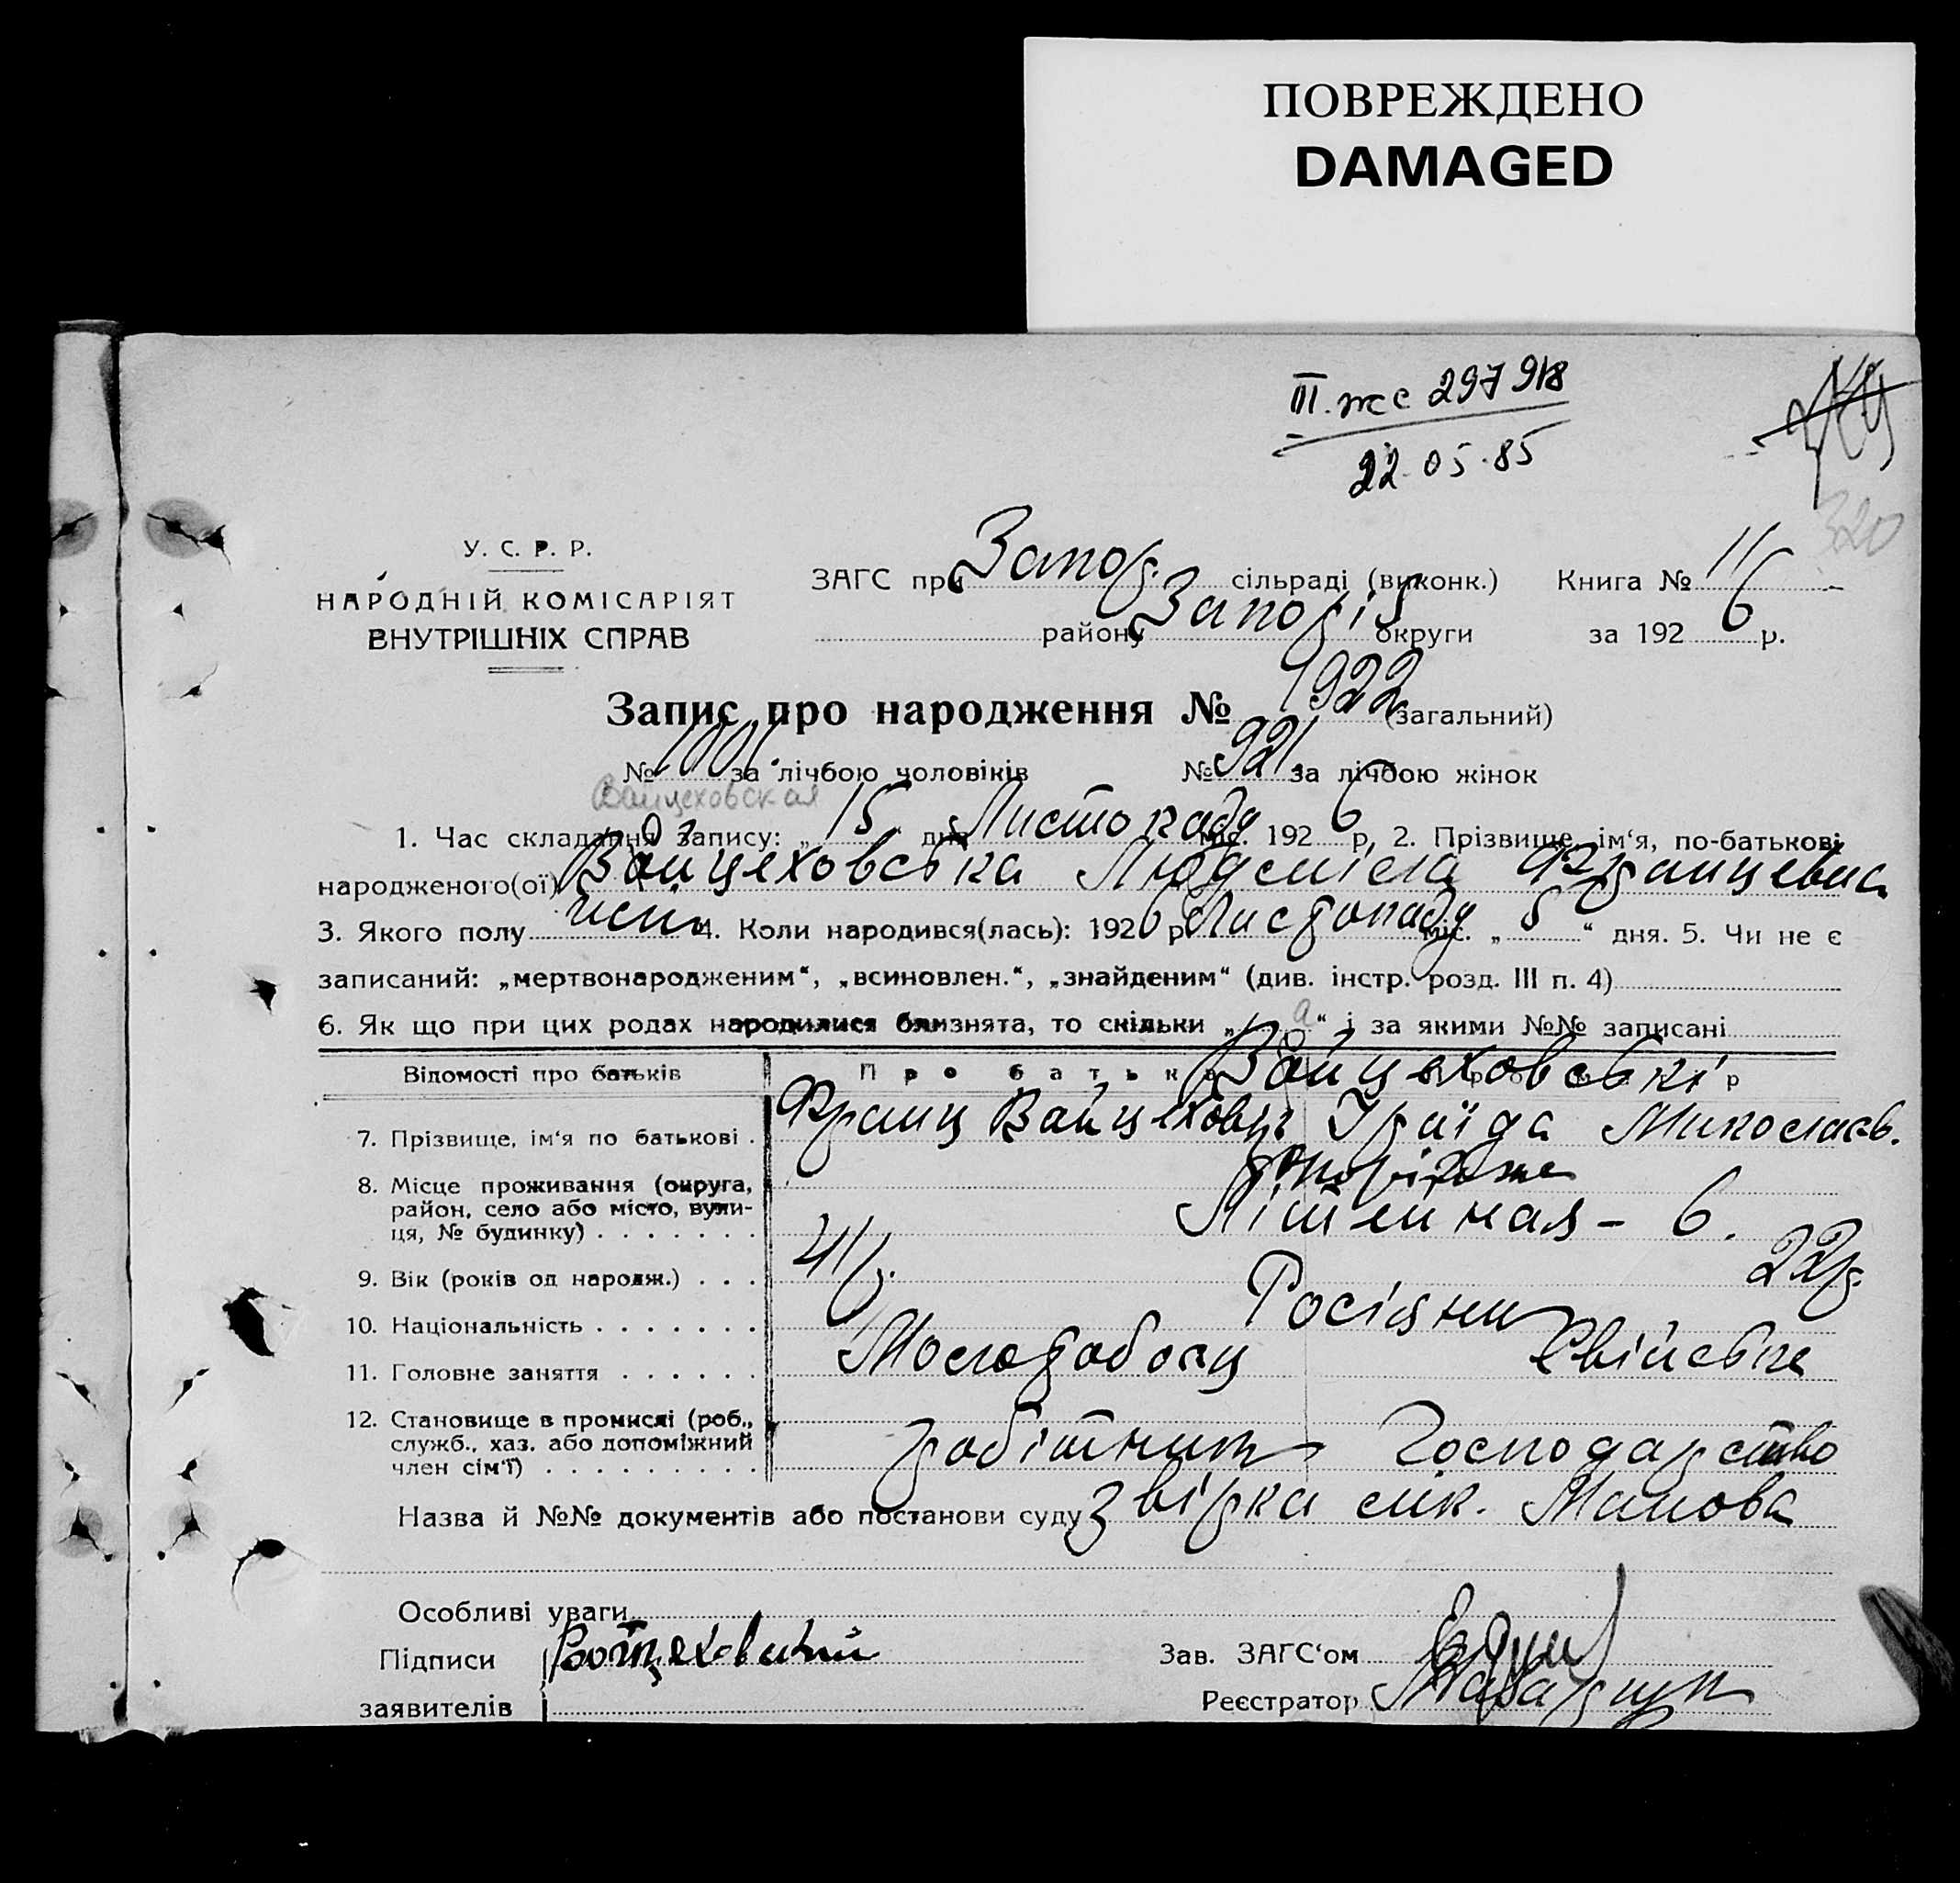 ПОВРЕЖДЕНО
DAMAGED
III. жс 297918
22.05.85
320
У. С. Р. Р.
НАРОДНІЙ КОМІСАРІЯТ
ВНУТРІШНІХ СПРАВ
ЗАГС при Запор. сільраді (виконк.) Книга № 11
району Запоріз округи за 1926 р.
Запис про народження № 1922 (загальний)
№ 1001. за лічбою чоловіків № 921 за лічбою жінок
Войцеховская
1. Час складання запису: „15 дня Листопада міс. 1926 р. 2. Прізвище, ім‘я, по-батькові
народженого(ої) Вайцеховська Людміла Францевна
3. Якого полу жін. 4. Коли народився(лась): 1926 р. Листопада міс. „5“ дня. 5. Чи не є
записаний: „мертвонародженим“, „всиновлен.“, „знайденим“ (див. інстр. розд. III п. 4)
6. Як що при цих родах народилися близнята, то скільки „ “ і за якими №№ записані
Відомості про батьків Про батька Вайцеховські
7. Прізвище, ім‘я по батькові . Франц Вайцехович Іраїда Миколаєв.
8. Місце проживання (округа,
район, село або місто, вули-
ця, № будинку) . . . . . . . Запоріжже
Літейная - 6.
9. Вік (років од народж.) . . . 41 р. 22 р.
10. Національність . . . . . . . Росіяни
11. Головне заняття . . . . . . Хвійське
12. Становище в промислі (роб.,
служб., хаз. або допоміжний
член сім‘ї) . . . . . . . . . робітник Господарство
Назва й №№ документів або постанови суду Звірка
Особливі уваги
Підписи Войцеховский Зав. ЗАГС‘ом
заявителів Реєстратор